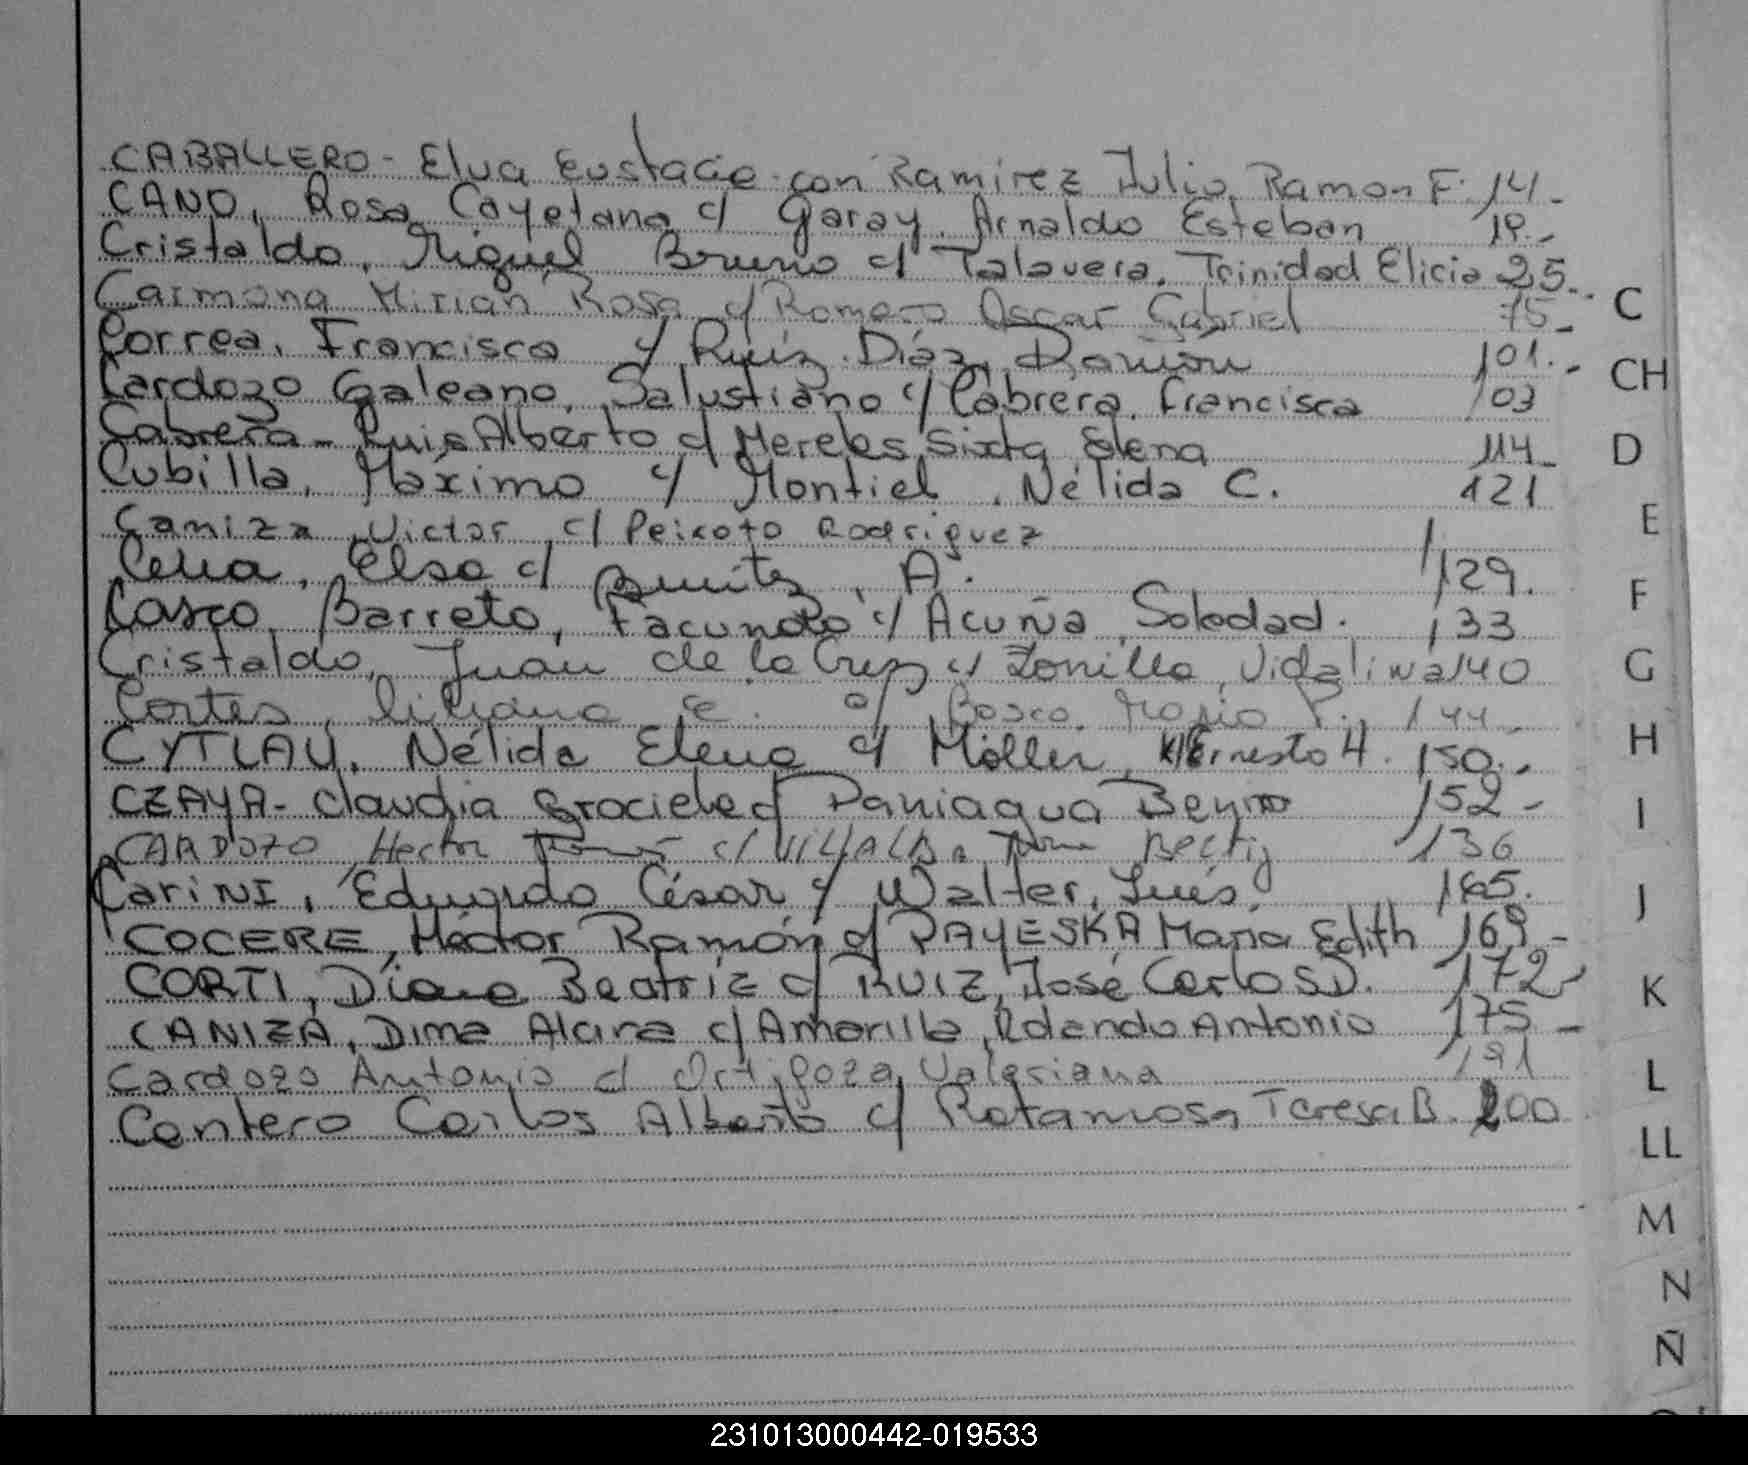 CABALLERO - Elva Eustacia con Ramirez Julio Ramon F. 14-
CANO, Rosa Cayetana c/ Garay, Arnaldo Esteban 19.-
Cristaldo, Miguel Bruno c/ Talavera, Trinidad Elicia 25.-
Carmona Mirian Rosa c/ Romero Oscar Gabriel 75-
Correa, Francisca c/ Ruíz Díaz, Damian 101.-
Cardozo Galeano, Salustiano c/ Cabrera, Francisca 103
Cabrera - Luis Alberto c/ Mereles, Sixta Elena 114-
Cubilla, Máximo c/ Montiel, Nélida C. 121
Caniza Victor c/ Peixoto Rodriguez
Celia, Elsa c/ Benitez, A. 129.
Casco Barreto, Facundo c/ Acuña, Soledad. 133
Cristaldo, Juan de la Cruz c/ Vidalina 140
Cortes, Liliana E. c/ Bosco Mario P. 144
CYTLAU, Nélida Elena c/ Möller, Ernesto H. 150.-
CZAYA - Claudia Graciela c/ Paniagua 152-
CARDOZO, Hector c/ VILLALBA 136
CariNI, Eduardo César c/ Walter, Luís, 165.
COCERE, Héctor Ramón c/ PAYESKA Maria Edith 169-
CORTI, Diana Beatriz c/ RUIZ, José Carlos D. 172-
CANIZA, Dima Alcira c/ Amarilla, Rolando Antonio 175-
Cardozo Antonio c/ Ortigoza, Valeriana 191
Cantero Carlos Alberto c/ Retamosa, Teresa B. 200
C
CH
D
E
F
G
H
I
J
K
L
LL
M
N
Ñ
231013000442-019533